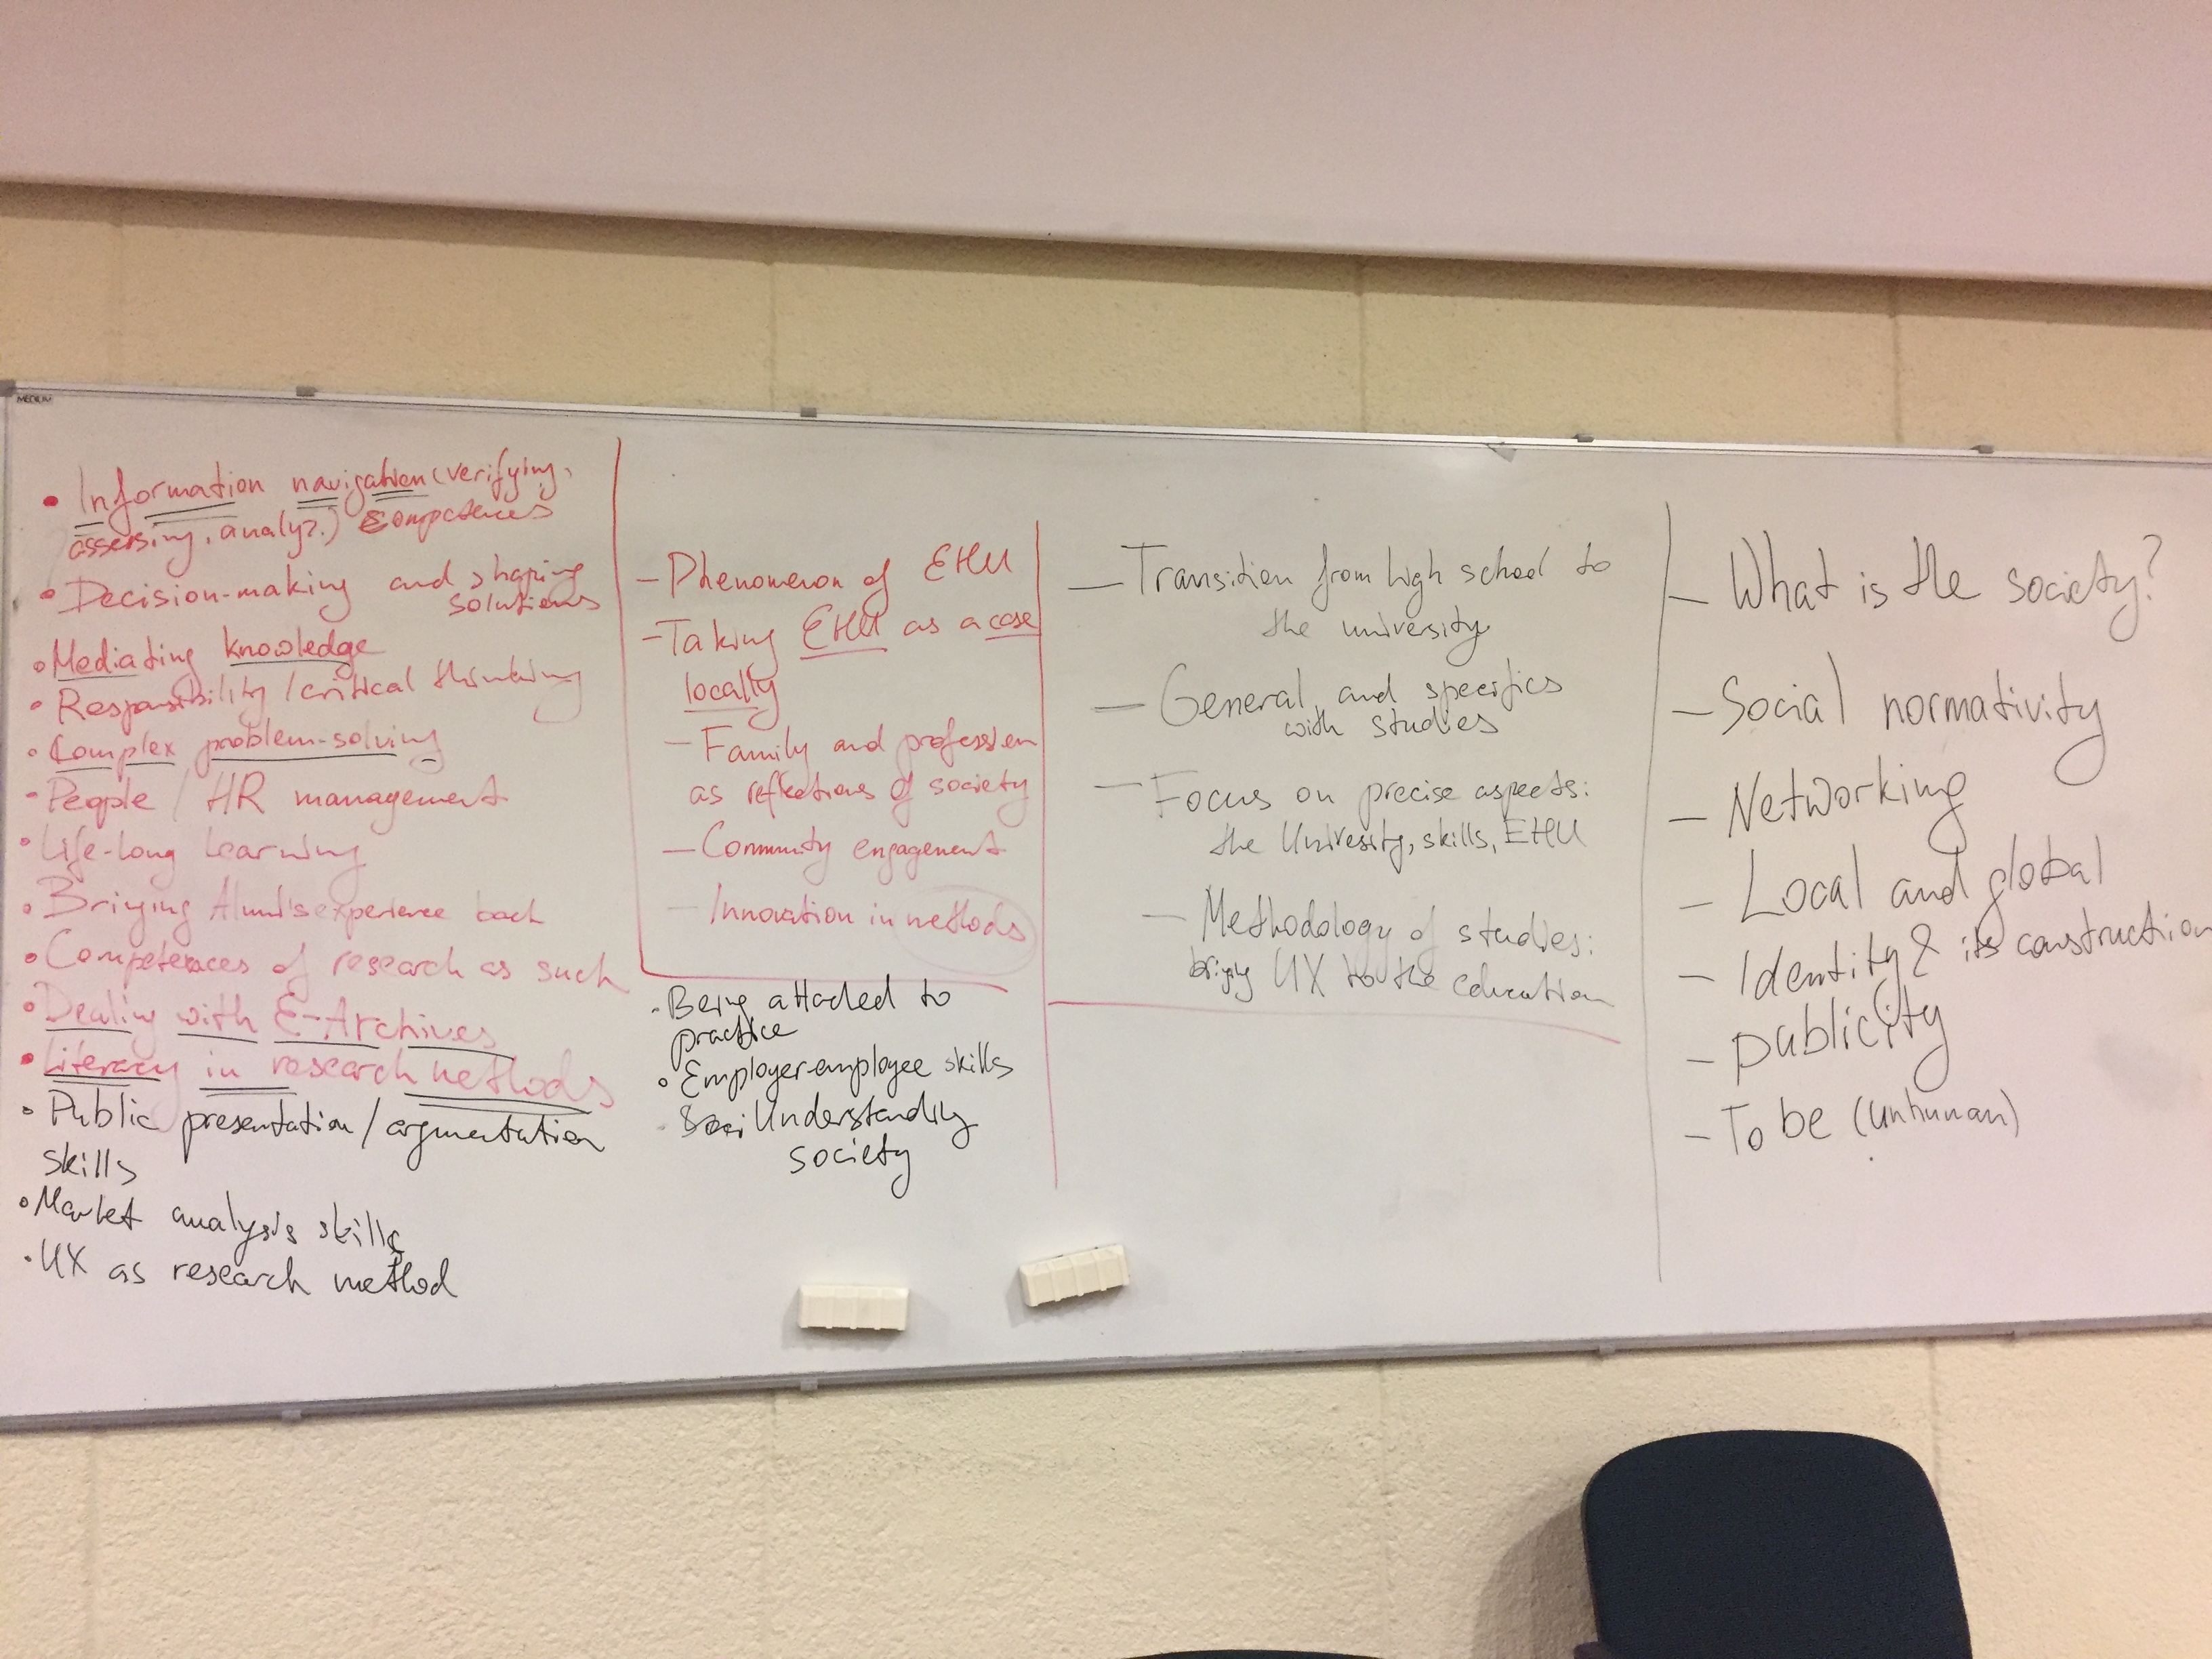 MEDIUM
• Information navigation (verifying,
assessing, analyz.) competences
• Decision-making and shaping
solutions
• Mediating knowledge
• Responsibility / critical thinking
• Complex problem-solving
• People / HR management
• Life-long learning
• Bringing Alumni's experience back
• Competences of research as such
• Dealing with E-Archives
• Literacy in research methods
• Public presentation / argmentation
skills
• Market analysis skills
• UX as research method
– Phenomenon of EHU
– Taking EHU as a case
locally
– Family and profession
as reflections of society
– Community engagement
– Innovation in methods
• Being attached to
practice
• Employer-employee skills
• Understanding
society
– Transition from high school to
the university
– General and specifics
with studies
– Focus on precise aspects:
the Univesity, skills, EHU
– Methodology of studies:
bringing UX to the education
– What is the society?
– Social normativity
– Networking
– Local and global
– Identity & its construction
– publicity
– To be (unhuman)